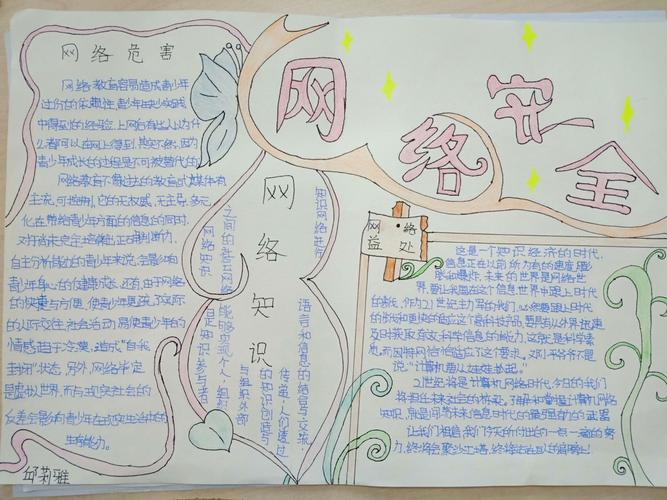 网络安全
网络危害
网络教育容易造成青少年
过份的依赖性,青少年在现实
中得到的经验,上网后有些人以为什
么都可以在网上得到,其实不然,因为
青少年成长的过程是不可被替代的
网络教育不像过去的教育或媒体有
主流,可控制,它的无权威、无主导、多元
化,在带给青少年方面的信息的同时,
对于尚未完全
自主分析能力的青少年来说,会影响
青少年身心的健康成长,还有,由于网络
的快捷与方便,使青少年更疏于实际
的人际交往,社会活动,易使青少年的
情感趋于冷集,造成"自我
封闭"状态,另外,网络毕竟
是虚拟世界,而与现实社会的
反差会影响青少年在现实生活中的
生存能力。
邱莉雅
网络知识
知识网络是指
语言和信息的结合与交流,
传递,人们透过
的知识创造与
与组织外部
能够实现个人,组织
之间的
网络知识
自是知识参与者
网络
益处
这是一个知识经济的时代,
信息正在以前所为有的速度膨
胀和爆炸,未来的世界是网络世
界,要让我国在这个信息世界中跟上时代
的步伐,作为21世纪主力军的我们,必然要跟上时代
的步伐和更快的适应这个高科技的社会,要具有从外界迅速
及时获取有效科学信息的能力,这就是科学素
质,而因特网恰恰适应了这个要求。
说"计算机要从娃娃抓起。"
21世纪将是计算机网络时代,今日的我们
将担任未来社会的桥梁。了解和掌握计算机网络
知识,就是开启未来信息时代的最强有力的武器
让我们相信我们今天所付出的一点一滴的努
力,终将会聚沙成塔,